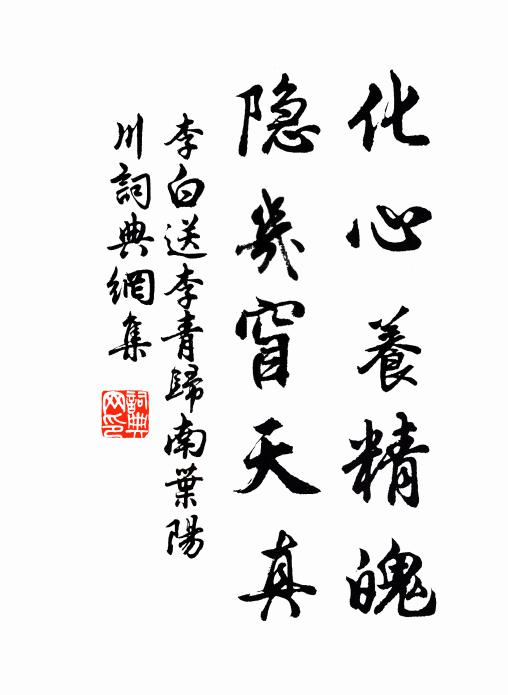 化心養精魄
隐幾窅天真
李白送李青歸南葉陽
川詞典網集
詞典网印